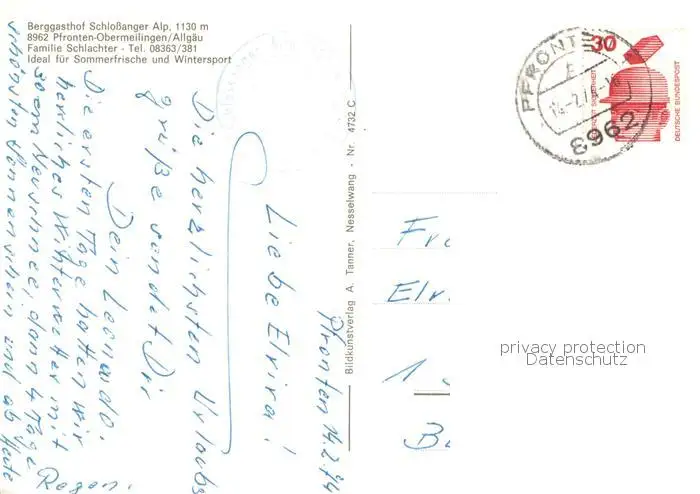 Berggasthof Schloßanger Alp, 1130 m
8962 Pfronten-Obermeilingen/Allgäu
Familie Schlachter - Tel. 08363/381
Ideal für Sommerfrische und Wintersport
Pfronten 14.2.74
Liebe Elvira!
Die herzlichsten Urlaubs
grüße sendet Dir
Dein Leonardo.
Die ersten Tage hatten wir
herrliches Winterwetter mit
30 cm Neuschnee, dann 4 Tage
schönsten Sonnenschein und ab Heute
Regen.
Bildkunstverlag A. Tanner, Nesselwang - Nr. 4732 C
PFRONTEN
14.-2.74
8962
30
DEUTSCHE BUNDESPOST
Fr
Elv.
1
B
privacy protection
Datenschutz